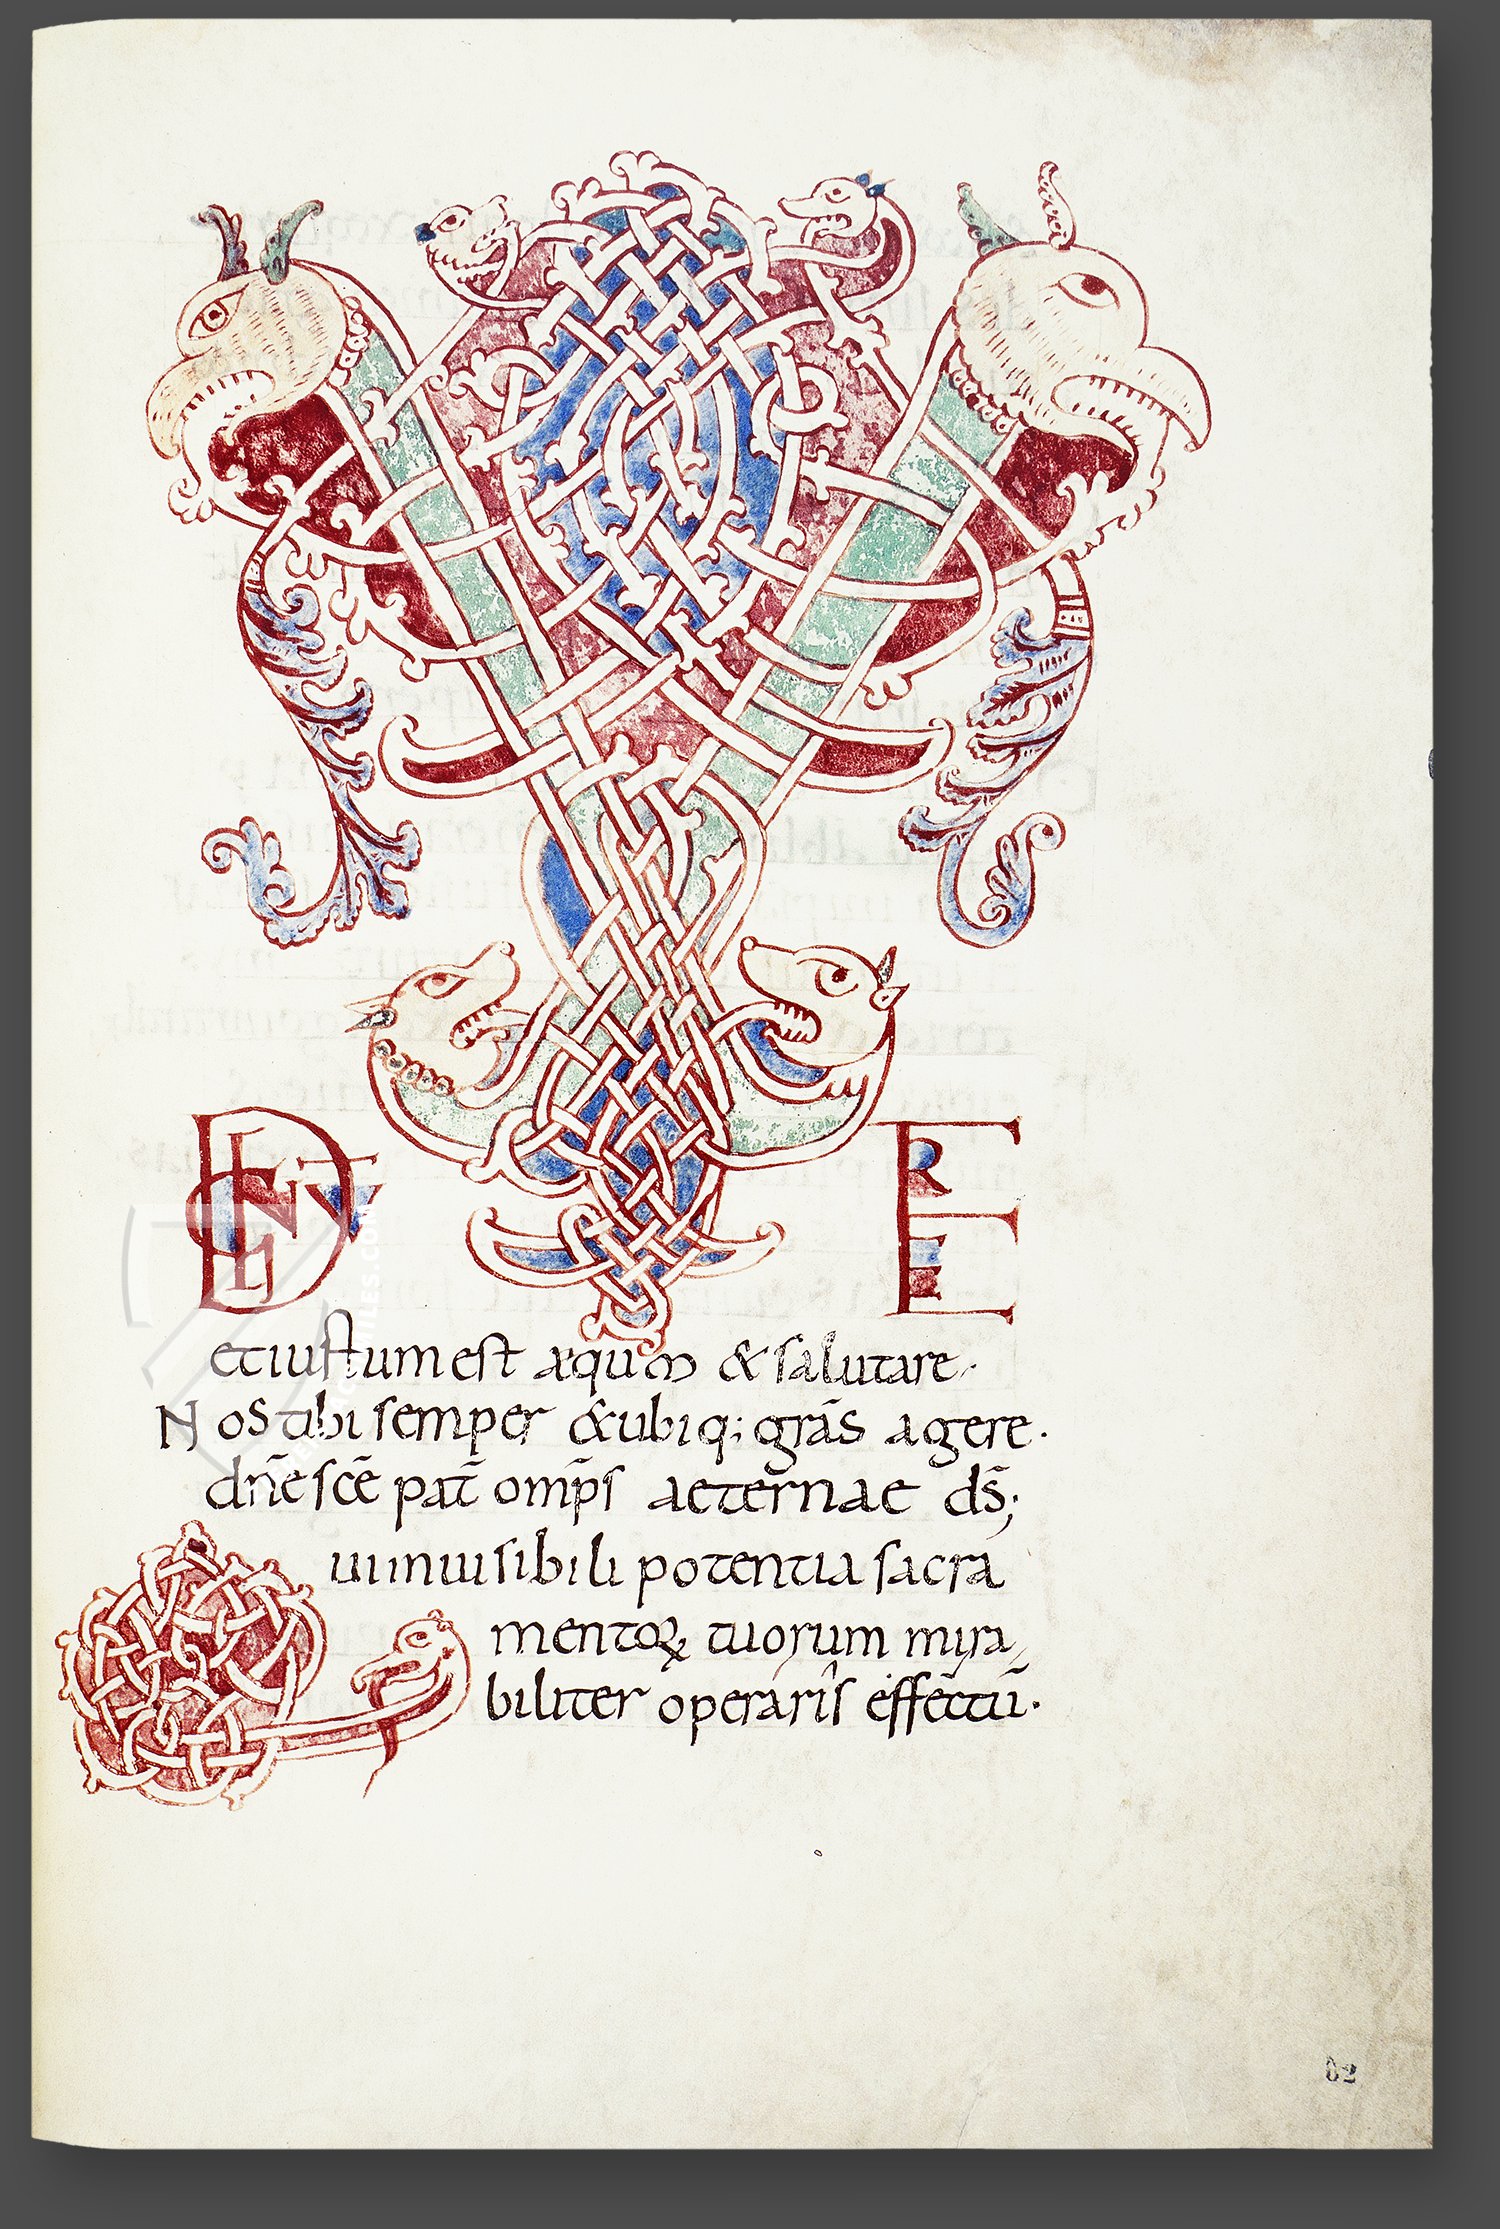 VERE DIGNU
et iustum est æquum & salutare.
Nos tibi semper & ubiq; grās agere.
dn̄e scē pat̄ omp̄s aeternae ds̄;
Qui inuisibili potentia sacra
mentoꝝ tuorum mira
biliter operaris effectū.
82